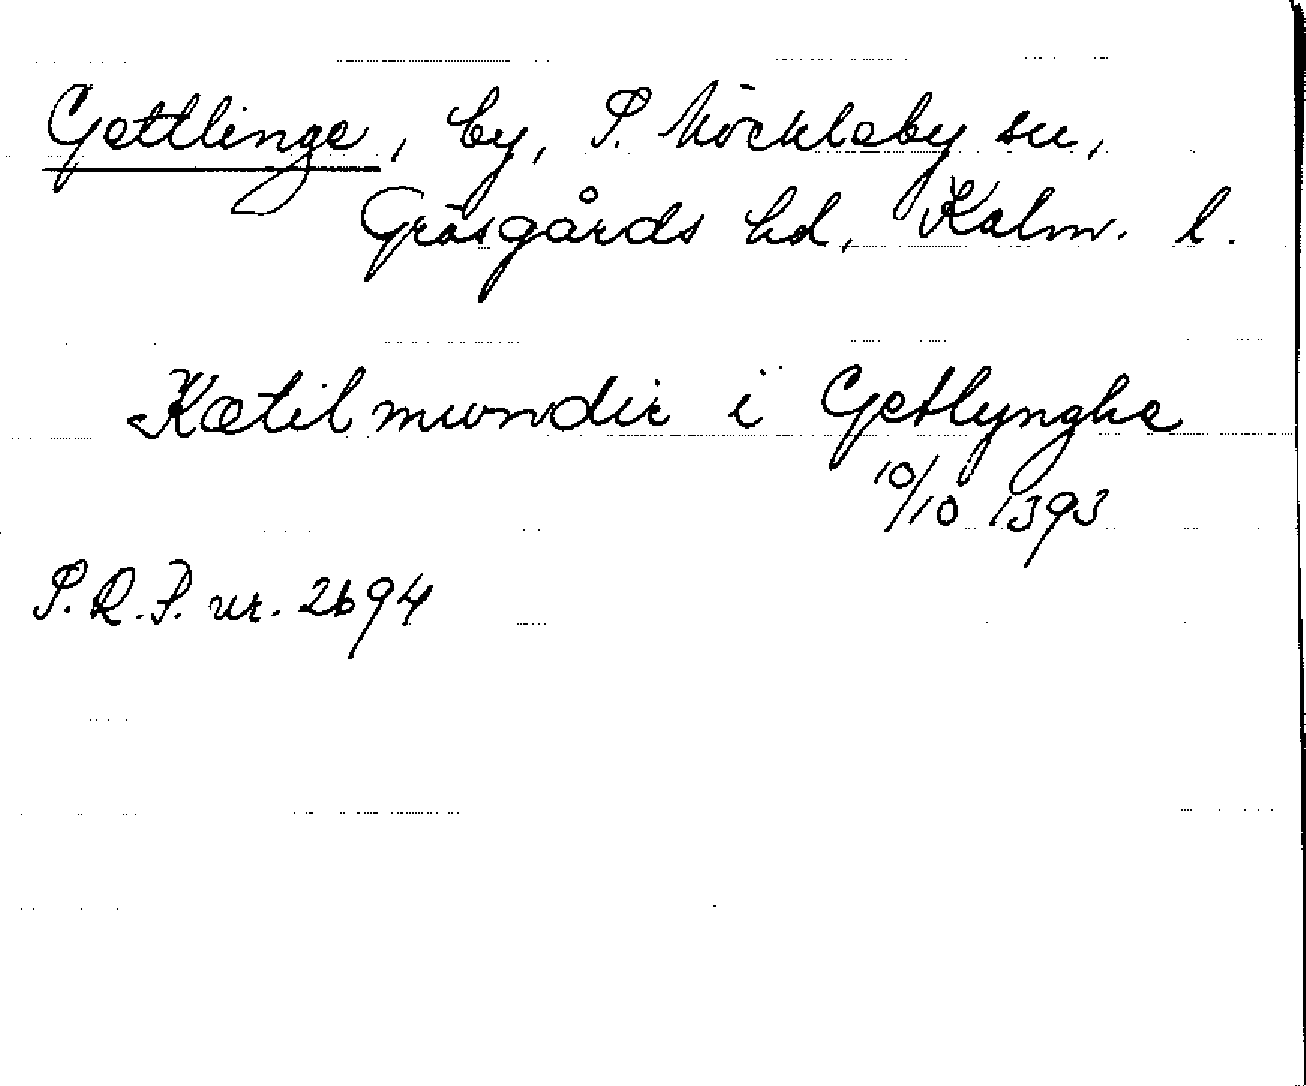 Gettlinge, by, S. Möckleby sn,
Gräsgårds hd, Kalm. l.
Kætilmundir i Getlynghe
10/10 1393
S.R.P. nr. 2694